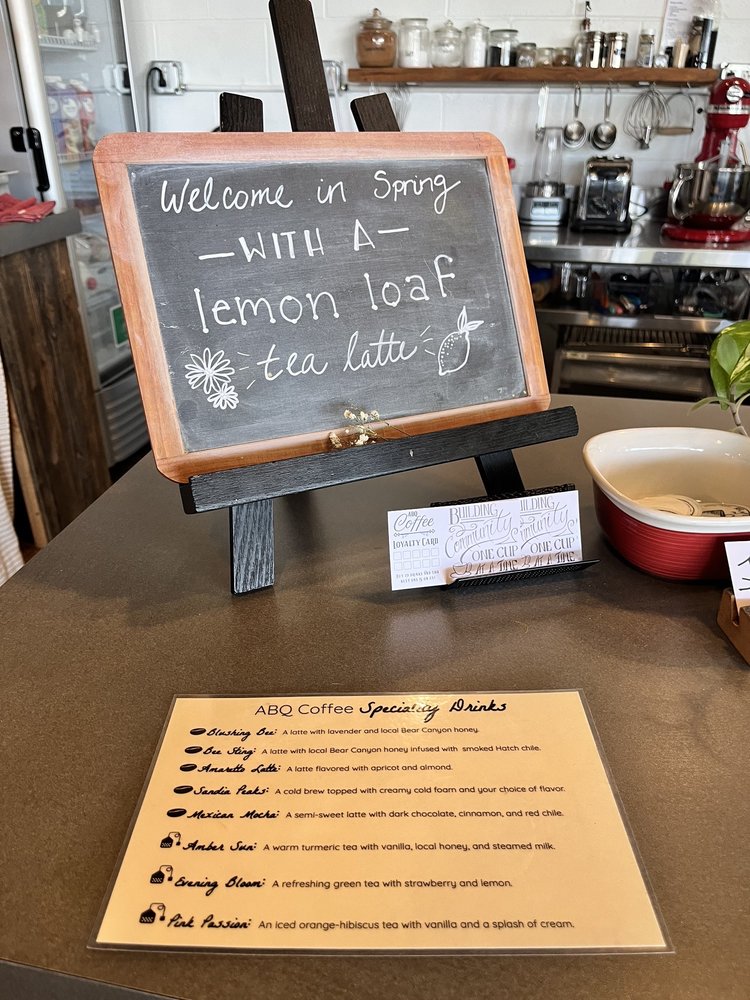 Welcome in Spring
—WITH A—
lemon loaf
tea latte
ABQ
Coffee
LOYALTY CARD
BUILDING
Community
ONE CUP
AT A TIME
ONE CUP
AT A TIME
ABQ Coffee Speciality Drinks
Blushing Bee: A latte with lavender and local Bear Canyon honey.
Bee Sting: A latte with local Bear Canyon honey infused with smoked Hatch chile.
Amaretto Latte: A latte flavored with apricot and almond.
Sandia Peaks: A cold brew topped with creamy cold foam and your choice of flavor.
Mexican Mocha: A semi-sweet latte with dark chocolate, cinnamon, and red chile.
Amber Sun: A warm turmeric tea with vanilla, local honey, and steamed milk.
Evening Bloom: A refreshing green tea with strawberry and lemon.
Pink Passion: An iced orange-hibiscus tea with vanilla and a splash of cream.